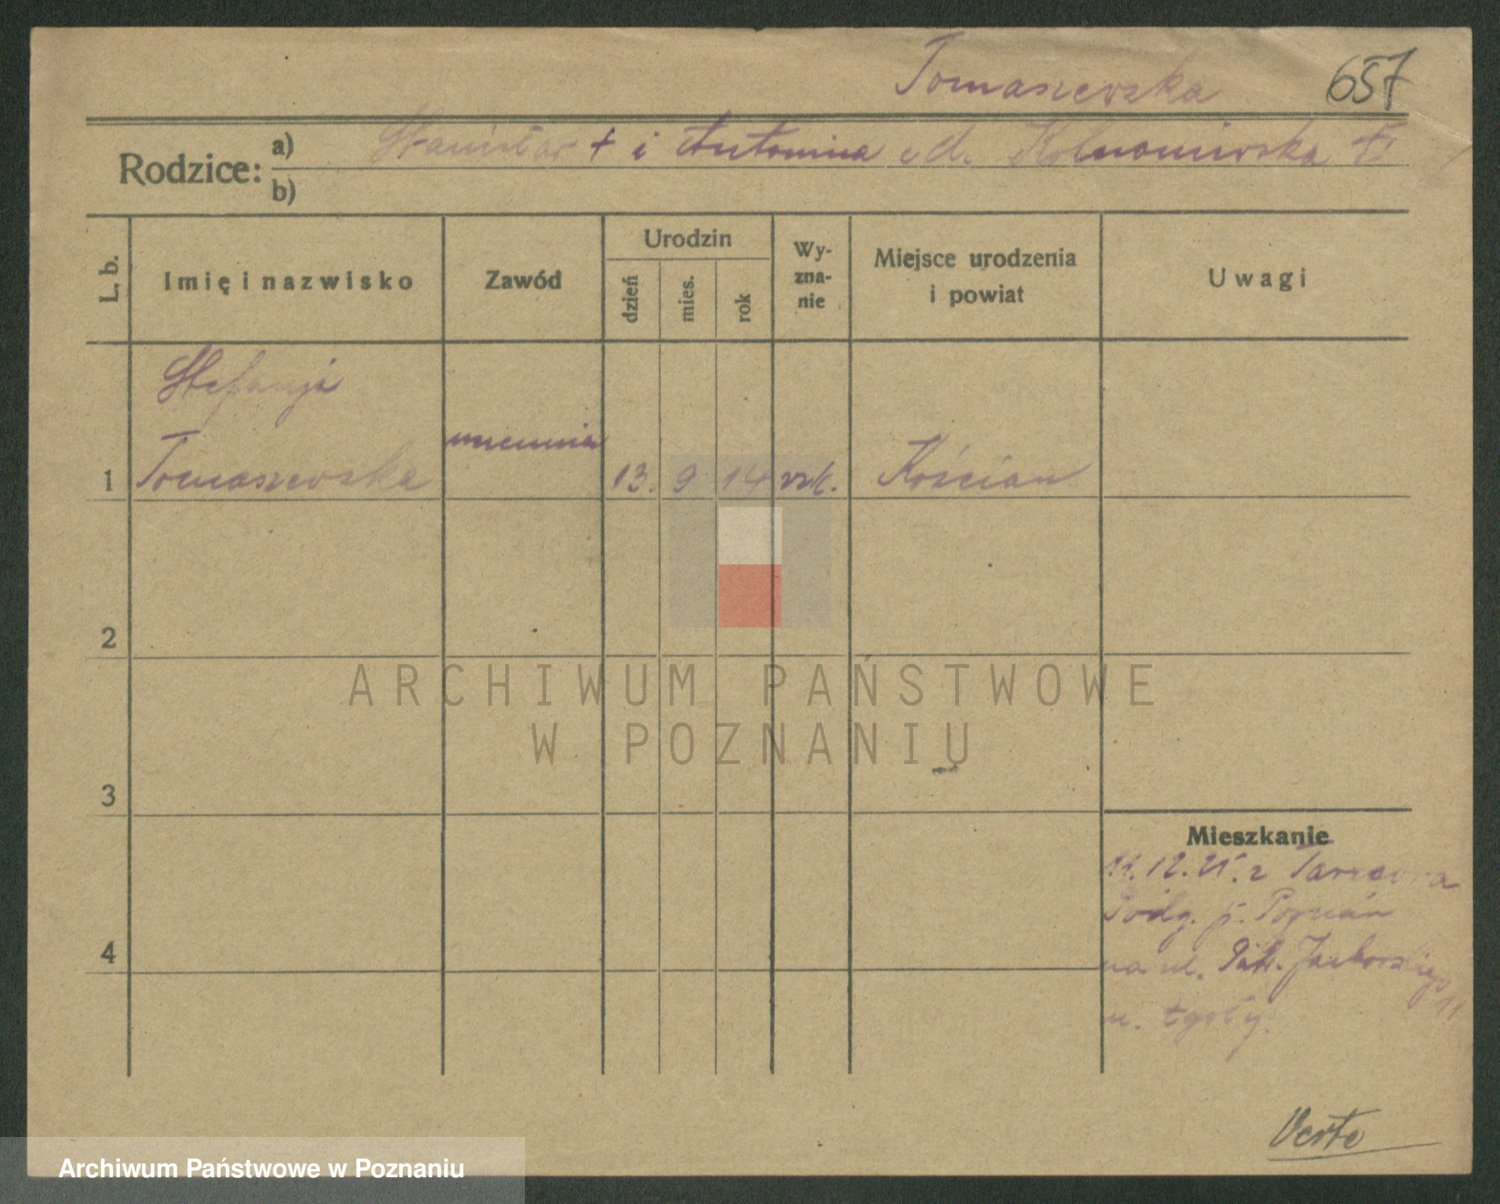 Tomaszewska 657
Rodzice: a) Stanisław + i Antonina +
b)
L. b. Imię i nazwisko Zawód Urodzin dzień mies. rok Wyznanie Miejsce urodzenia i powiat Uwagi
Stefanja
uczennia
1 Tomaszewska 13. 9 14 rzk. Kościan
2
ARCHIWUM PAŃSTWOWE
W POZNANIU
3
Mieszkanie
11.12.25. z
p. Poznań
4 na ul.
11
u.
Verte
Archiwum Państwowe w Poznaniu